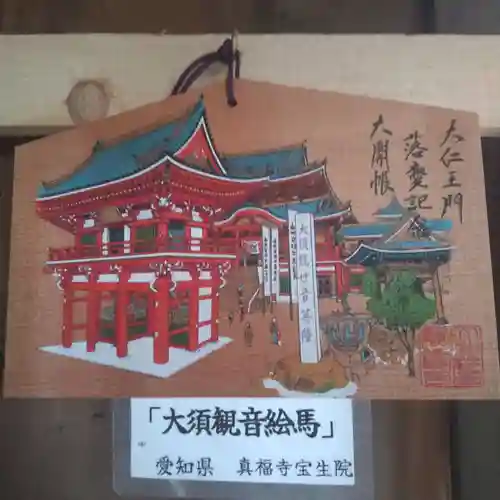 大仁王門
落慶記
大開帳
大須観世音菩薩
「大須観音絵馬」
愛知県 真福寺宝生院